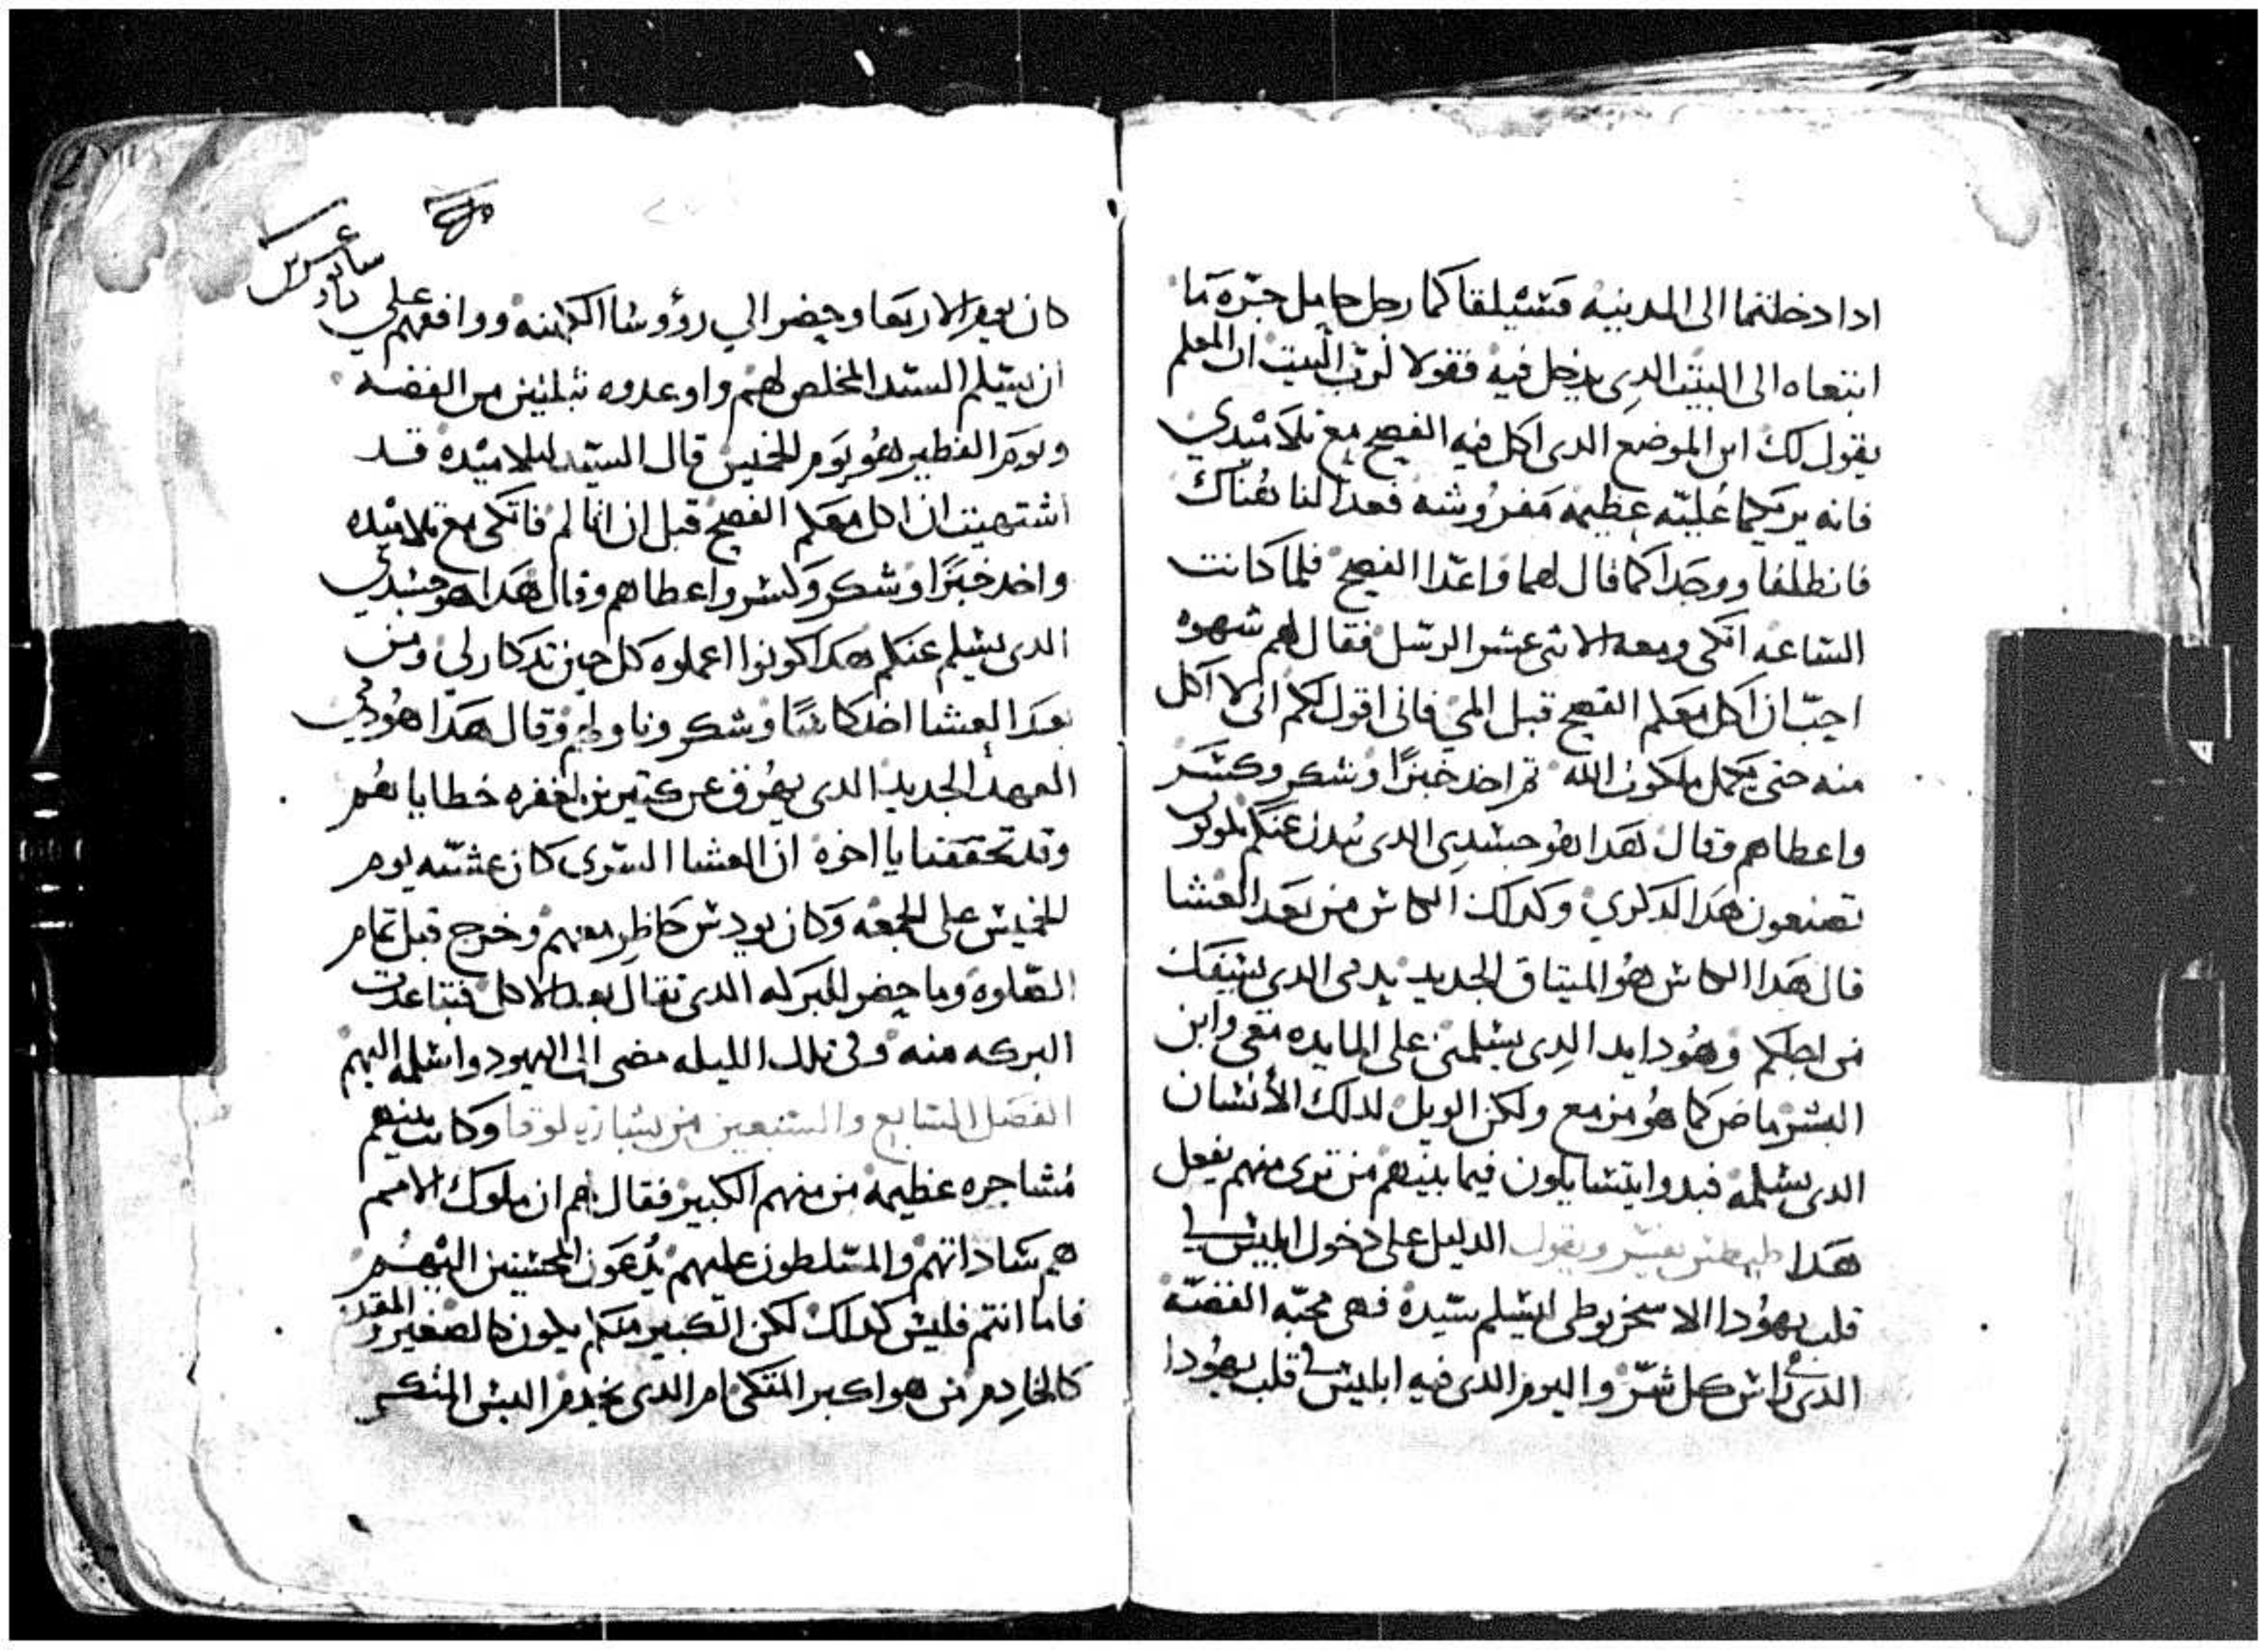 ادا دخلتما الى المدينه فسيلقاكما رجل حامل جرّه ما
اتبعاه الى البيت الدى يدخل فيه فقولا لرب البيت ان المعلم
يقول لك اين الموضع الدى اكل فيه الفصح مع تلاميدي
فانه يريكما عُليّه عظيمه مفروشه فعدا لنا هناك
فانطلقا ووجدا كما قال لهما واعدّا الفصح فلما كانت
الساعه اتكى ومعه الاثنى عشر الرسل فقال لهم شهوه
احبّ ان اكل معكم الفصح قبل المي فانى اقول لكم انى لا اكل
منه حتى يكمل ملكوت الله تم اخد خبزًا وشكر وكسر
واعطاهم وقال هدا هو جسدي الدى يبدل عنكم
تصنعون هدا لدكري وكدلك الكاس من بعد العشا
قال هدا الكاس هو الميتاق الجديد بدمى الدى يسفك
من اجلكم وهودا يد الدى يسلمنى على المايده معى وابن
البشر ماض كما هو مزمع ولكن الويل لدلك الانسان
الدى يسلمه فبدوا يتسايلون فيما بينهم من ترى منهم يفعل
هدا طيطس يفسر ويقول الدليل على دخول ابليس فى
قلب يهودا الاسخريوطى ليسلم سيده فهى محبّه الفضّه
الدى راس كل شرّ واليوم الدى فيه ابليس فى قلب يهودا
كان يوم الاربعا وحضر الى رؤوسا الكهنه ووافقهم على
ان يسلم السيد المخلص لهم واوعدوه بتلتين من الفضه
ويوم الفطير هو يوم الخميس قال السيد لتلاميده قد
اشتهيت ان اكل معكم الفصح قبل ان اتالم فاتكى مع تلاميده
واخد خبزًا وشكر وكسر واعطاهم وقال هدا هو جسدي
الدى يسلم عنكم هكدا كونوا اعملوه كل حين تدكار لى ومن
بعد العشا اخد كاسًا وشكر وناولهم وقال هدا هو دمي
العهد الجديد الدى يهرق عن كتيرين لغفره خطاياهم
وقد تحققنا يا اخوه ان العشا السّرى كان عشيّه يوم
الخميس على الجمعه وكان يودس حاظر معهم وخرج قبل تمام
الصّلوه وما حضر للبركه الدى تقال بعد الاكل فتباعدت
البركه منه وفى تلك الليله مضى الى اليهود واسلمه اليهم
الفصل السابع والسبعين من بشارة لوقا وكانت بينهم
مشاجره عظيمه من منهم الكبير فقال لهم ان ملوك الامم
هم ساداتهم والمسلطون عليهم يُدعون المحسنين اليهم
فاما انتم فليس كدلك لكن الكبير منكم يكون كالصغير والمقدم
كالخادم من هو اكبر المتكى ام الدى يخدم اليس المتكى